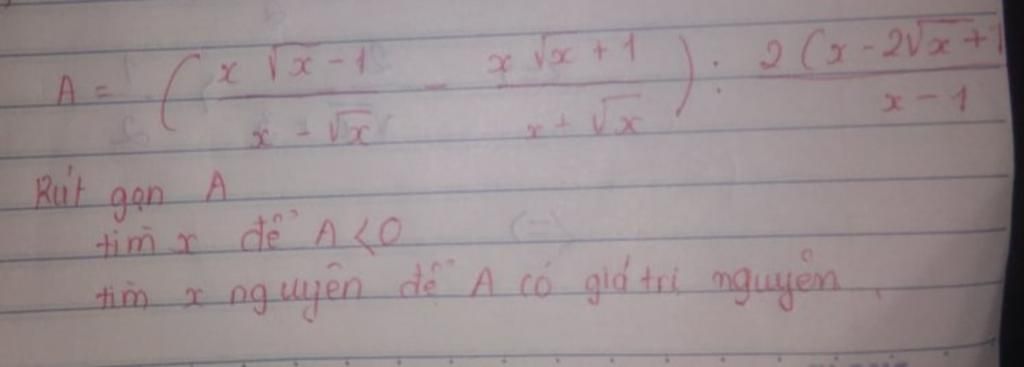 A = ( x√x - 1 / x - √x - x√x + 1 / x + √x ) : 2(x - 2√x + 1 / x - 1
Rút gọn A
tìm x để A < 0
tìm x nguyên để A có giá trị nguyên